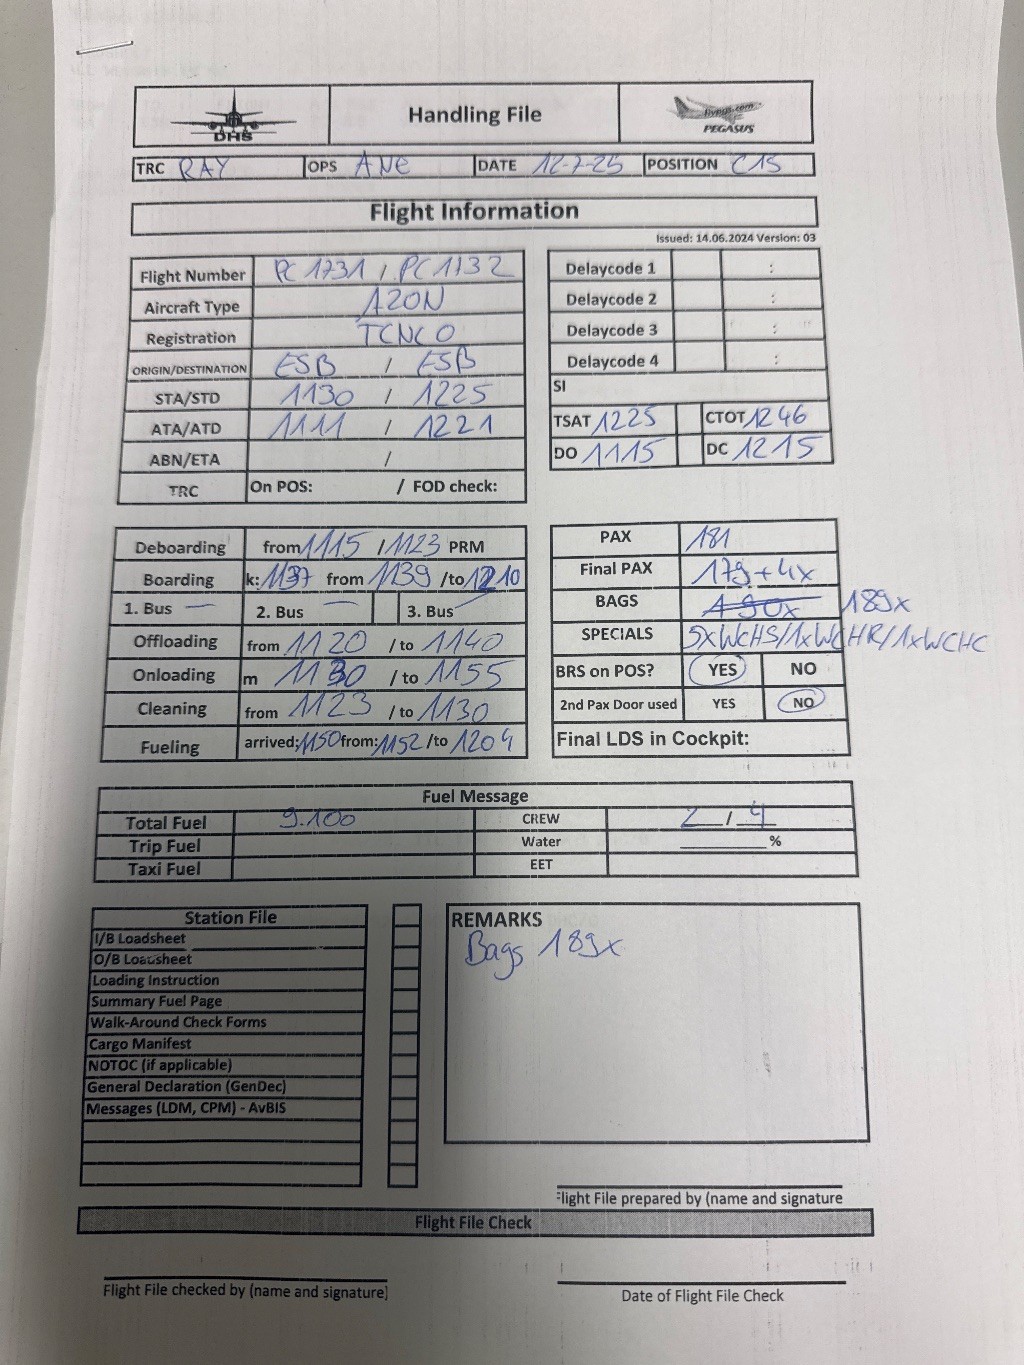 DHS
Handling File
flypgs.com
PEGASUS
TRC RAY OPS ANE DATE 12-7-25 POSITION C15
Flight Information
Issued: 14.06.2024 Version: 03
Flight Number PC 1731 / PC 1132
Aircraft Type A20N
Registration TCNCO
ORIGIN/DESTINATION ESB / ESB
STA/STD 1130 / 1225
ATA/ATD 1111 / 1221
ABN/ETA /
TRC On POS: / FOD check:
Delaycode 1 :
Delaycode 2 :
Delaycode 3 :
Delaycode 4 :
SI
TSAT 1225 CTOT 1246
DO 1115 DC 1215
Deboarding from 1115 / 1123 PRM
Boarding k: 1137 from 1139 /to 1210
1. Bus — 2. Bus — 3. Bus —
Offloading from 1120 /to 1140
Onloading m 1130 /to 1155
Cleaning from 1123 /to 1130
Fueling arrived: 1150 from: 1152 /to 1204
PAX 181
Final PAX 179+4x
BAGS 190x 189x
SPECIALS 5xWCHS/1xWCHR/1xWCHC
BRS on POS? YES NO
2nd Pax Door used YES NO
Final LDS in Cockpit:
Fuel Message
Total Fuel 9.100 CREW 2 / 4
Trip Fuel Water %
Taxi Fuel EET
Station File
I/B Loadsheet
O/B Loadsheet
Loading Instruction
Summary Fuel Page
Walk-Around Check Forms
Cargo Manifest
NOTOC (if applicable)
General Declaration (GenDec)
Messages (LDM, CPM) - AvBIS
REMARKS
Bags 189x
Flight File prepared by (name and signature
Flight File Check
Flight File checked by (name and signature)
Date of Flight File Check